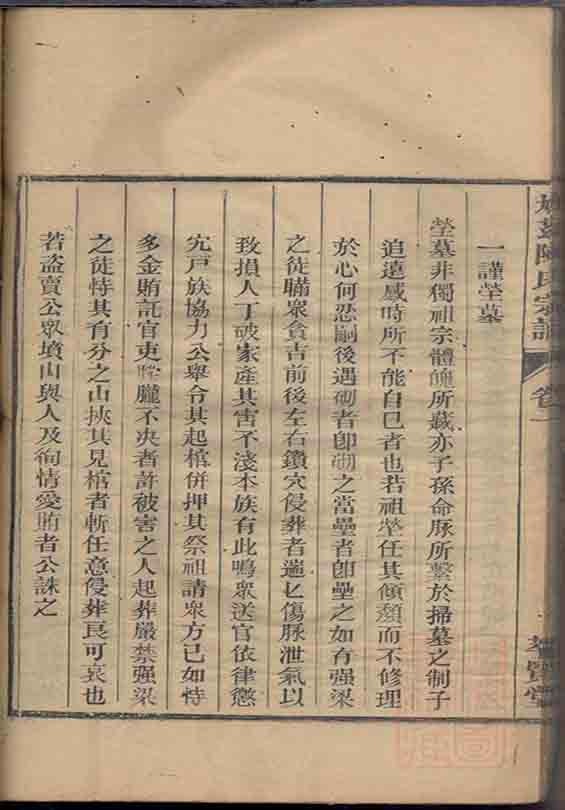 陳氏宗譜 卷一
一謹塋墓
塋墓非獨祖宗體魄所藏亦子孫命脉所繫於掃墓之制子
追遠感時所不能自已者也若祖塋任其傾頹而不修理
於心何忍嗣後遇砌者卽砌之當壘者卽壘之如有强梁
之徒瞞衆貪吉前後左右鑽穴侵葬者遄匕傷脉泄氣以
致損人丁破家產其害不淺本族有此鳴衆送官依律懲
宄戸族協力公舉令其起棺併押其祭祖請衆方已如恃
多金賄託官吏朦朧不决者許被害之人起葬嚴禁强梁
之徒恃其有分之山挾其見棺者斬任意侵葬良可哀也
若盗賣公衆墳山與人及徇情愛賄者公誅之
萃賢堂